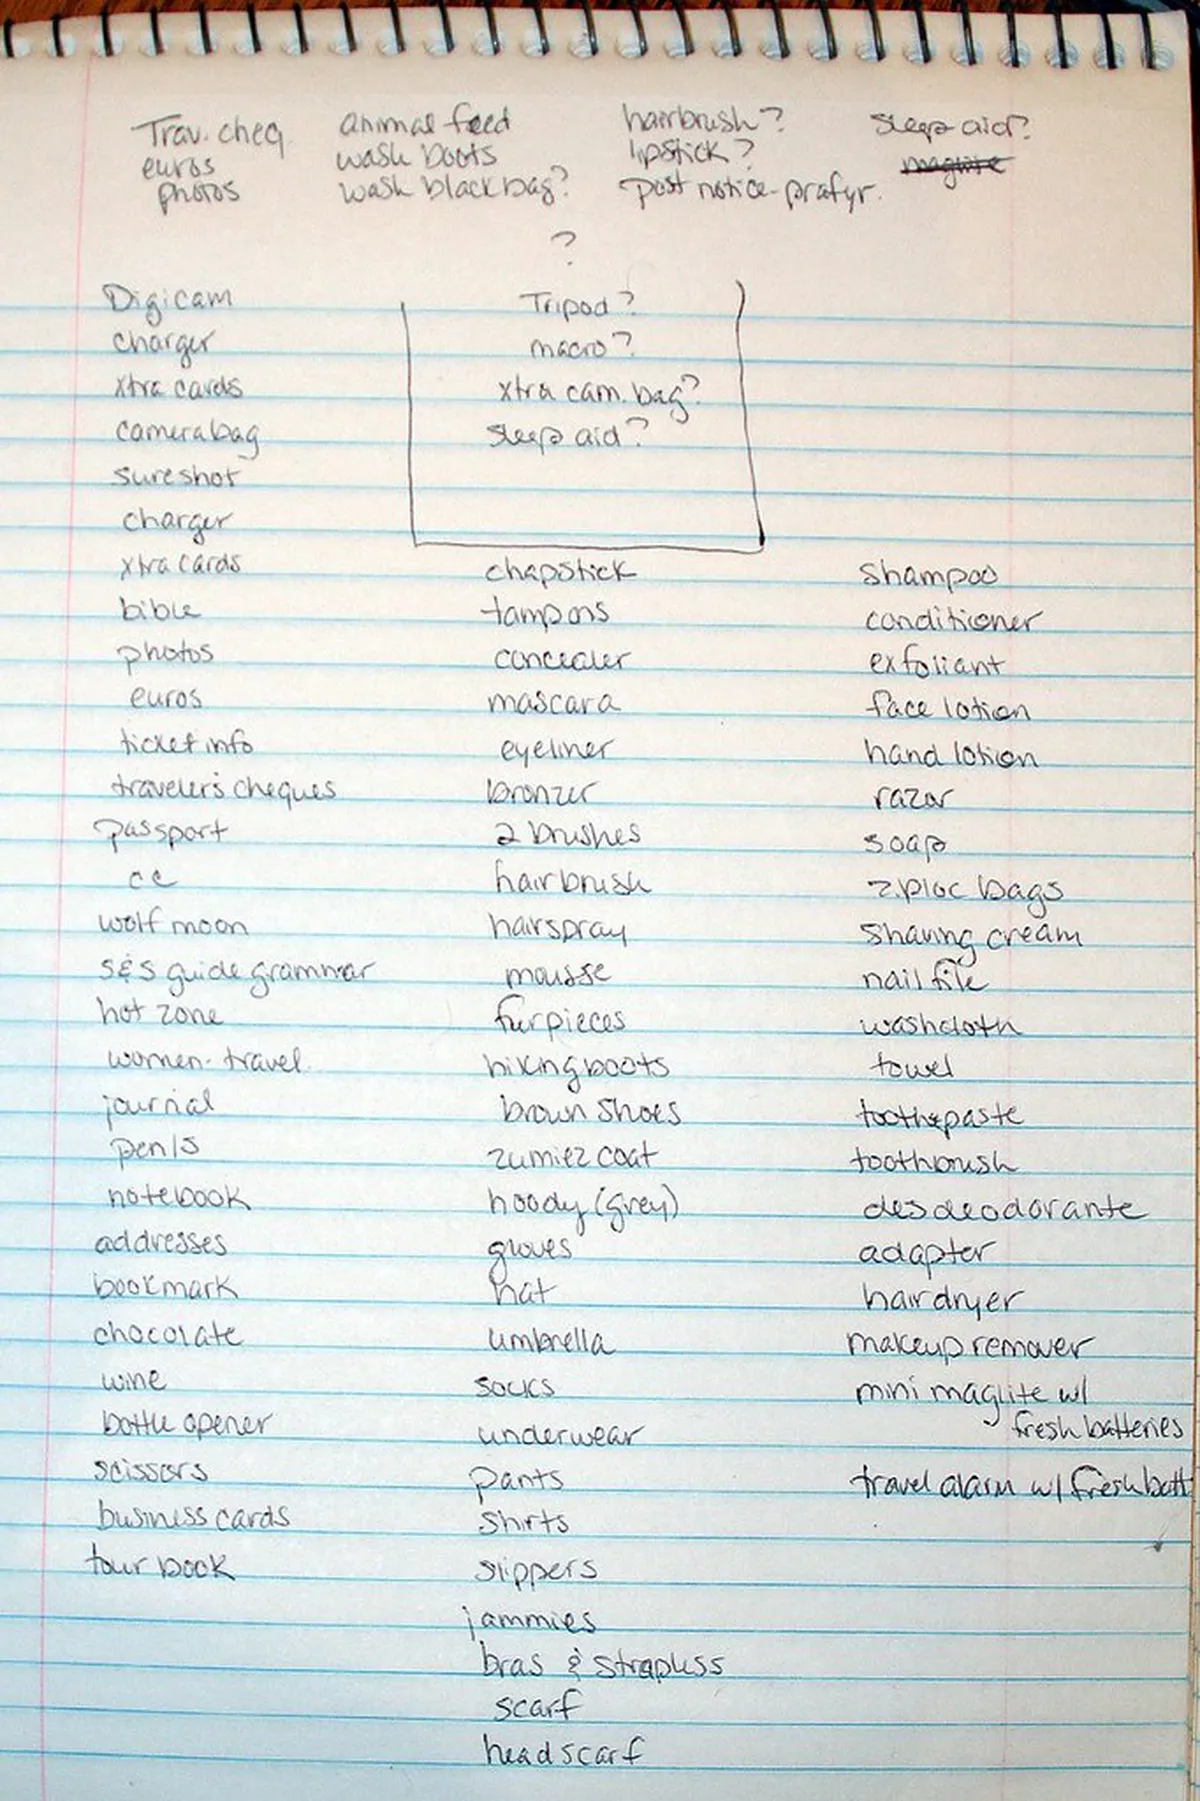 Trav. cheq.
euros
photos
animal feed
wash boots
wash black bag?
hairbrush?
lipstick?
post notice-prafyr.
sleep aid?
maglite
?
Tripod?
macro?
xtra cam. bag?
sleep aid?
Digicam
charger
xtra cards
camera bag
sureshot
charger
xtra cards
bible
photos
euros
ticket info
traveler's cheques
passport
cc
wolf moon
s&s guide grammar
hot zone
women-travel
journal
pen/s
notebook
addresses
bookmark
chocolate
wine
bottle opener
scissors
business cards
tour book
chapstick
tampons
concealer
mascara
eyeliner
bronzer
2 brushes
hairbrush
hairspray
mousse
furpieces
hiking boots
brown shoes
zumiez coat
hoody (grey)
gloves
hat
umbrella
socks
underwear
pants
shirts
slippers
jammies
bras & strapless
scarf
headscarf
shampoo
conditioner
exfoliant
face lotion
hand lotion
razor
soap
ziploc bags
shaving cream
nail file
washcloth
towel
toothepaste
toothbrush
desdeodorante
adapter
hairdryer
makeup remover
mini maglite w/
fresh batteries
travel alarm w/ fresh batt